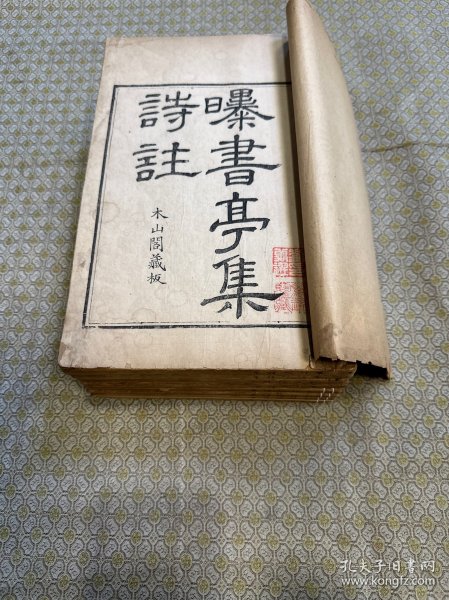 曝書亭集
詩註
木山閣藏板
孔夫子旧书网
www.kongfz.com